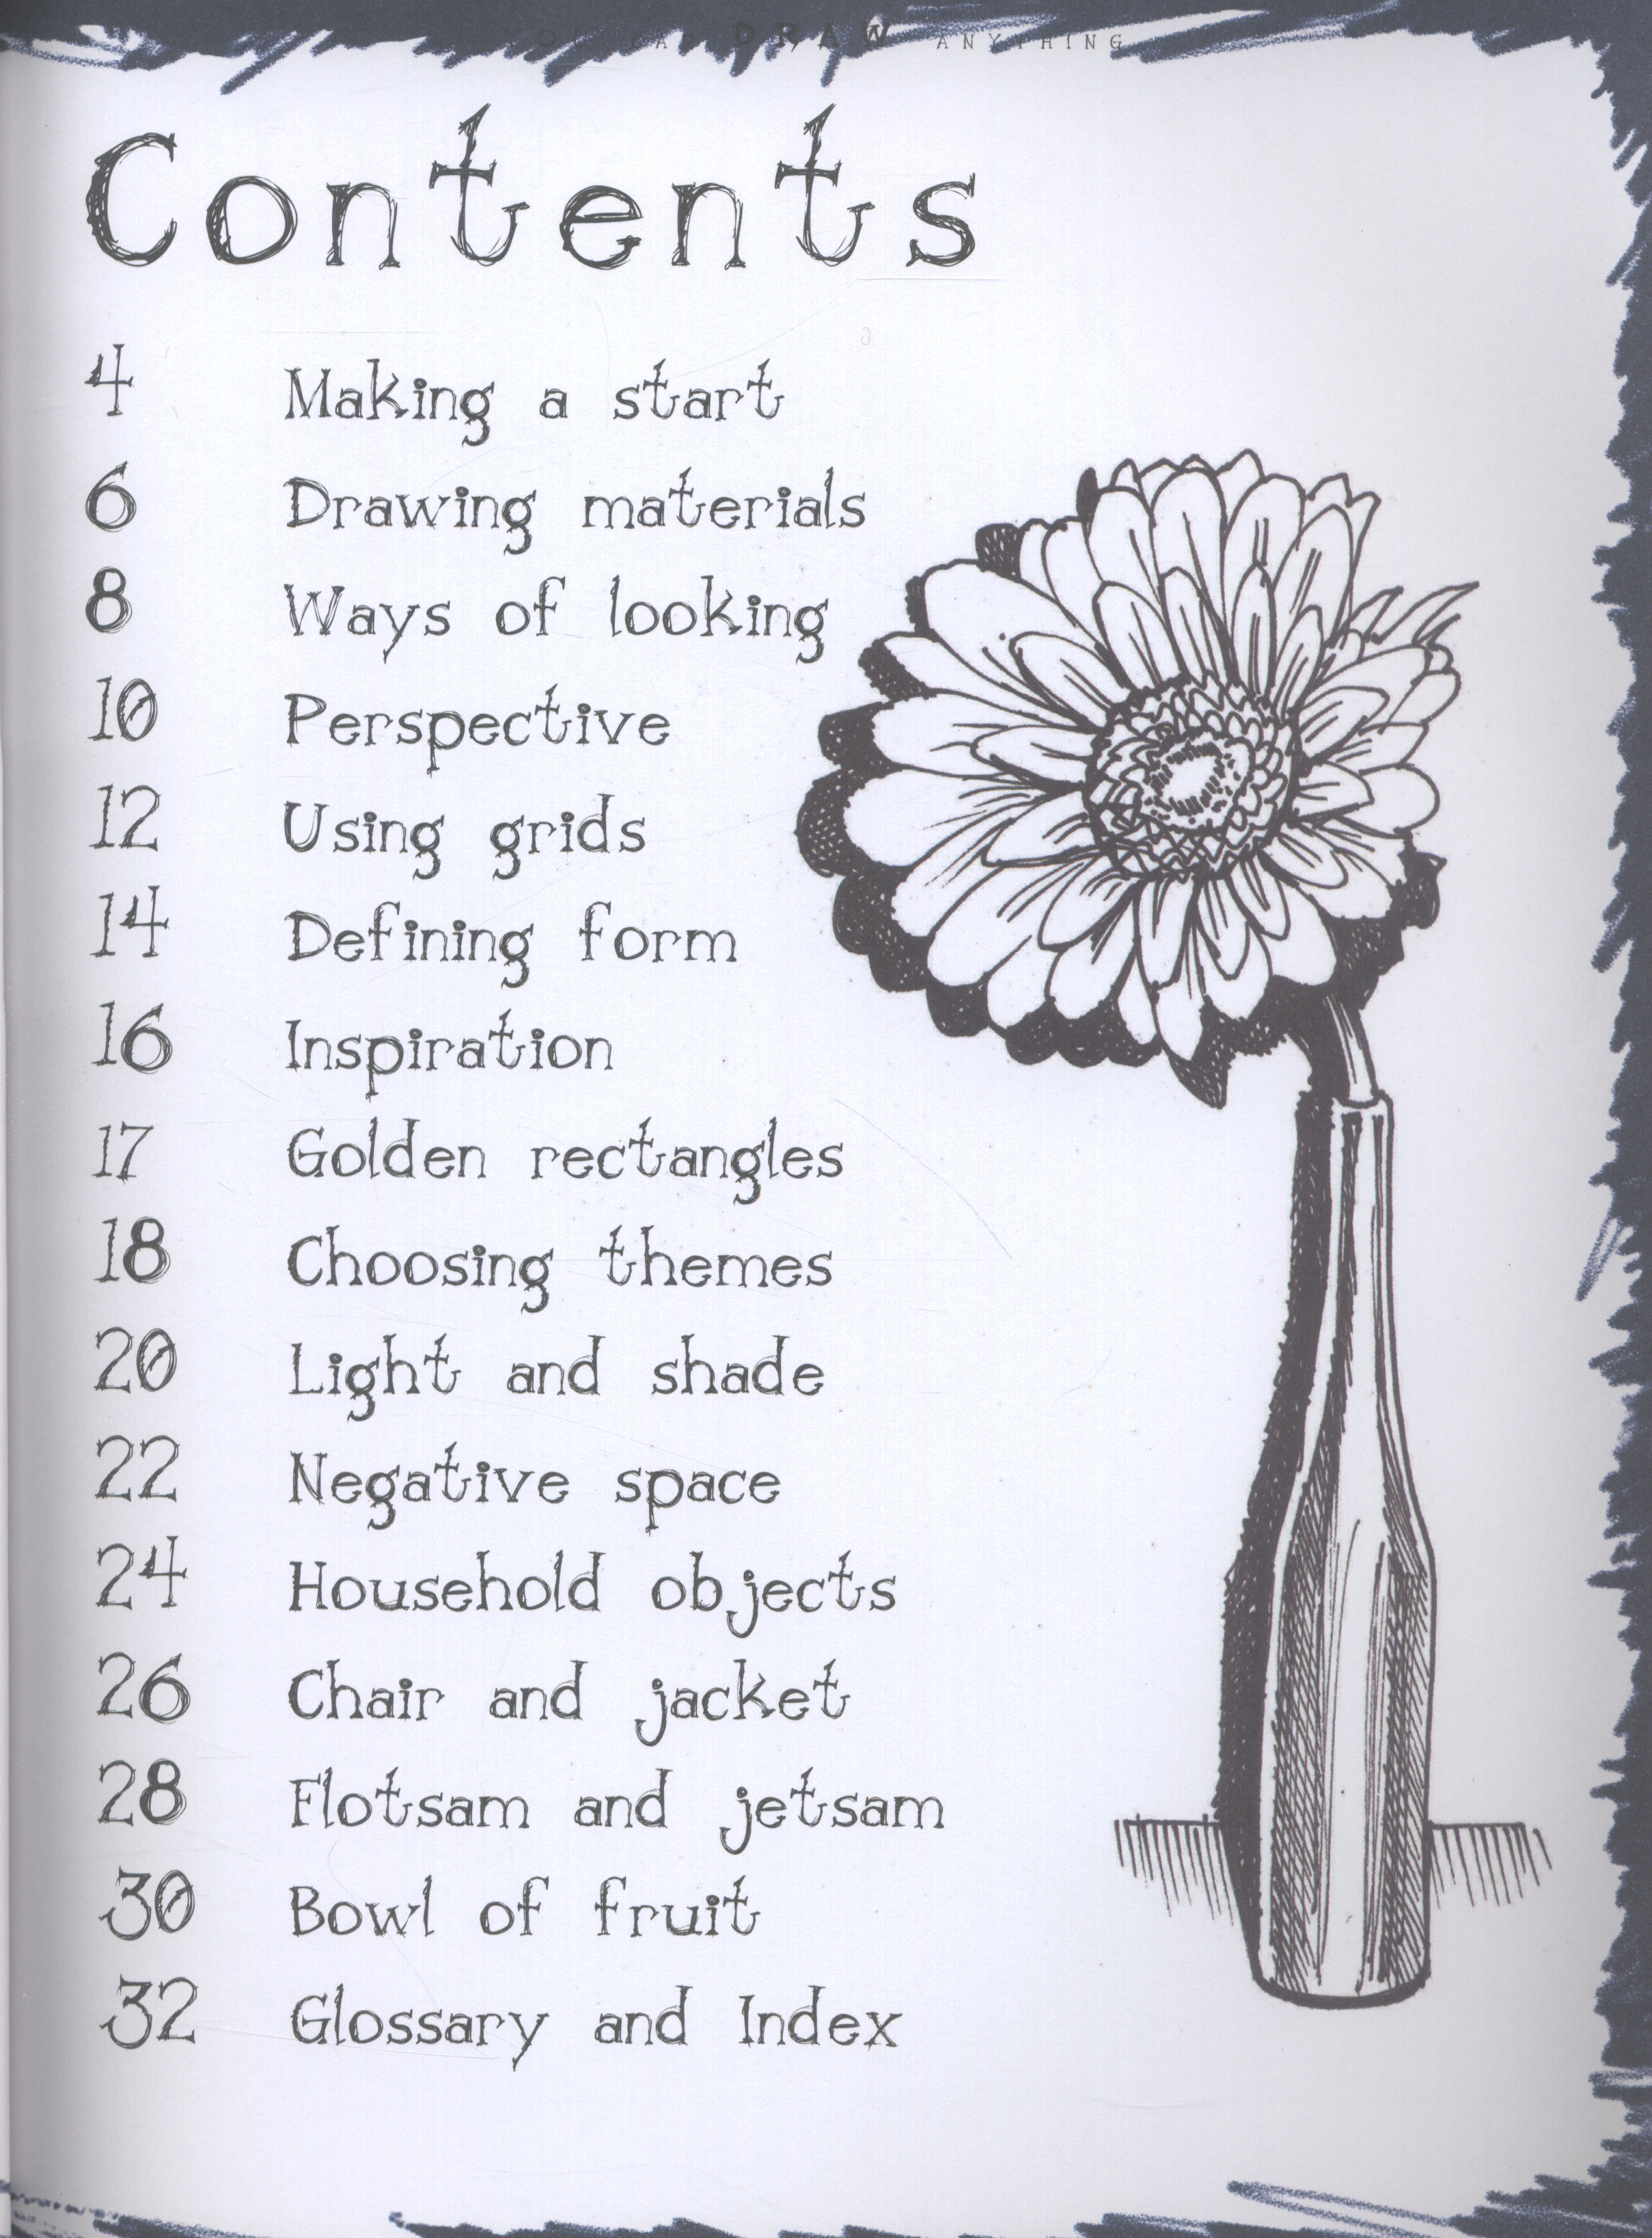 DRAW ANYTHING
Contents
4 Making a start
6 Drawing materials
8 Ways of looking
10 Perspective
12 Using grids
14 Defining form
16 Inspiration
17 Golden rectangles
18 Choosing themes
20 Light and shade
22 Negative space
24 Household objects
26 Chair and jacket
28 Flotsam and jetsam
30 Bowl of fruit
32 Glossary and Index